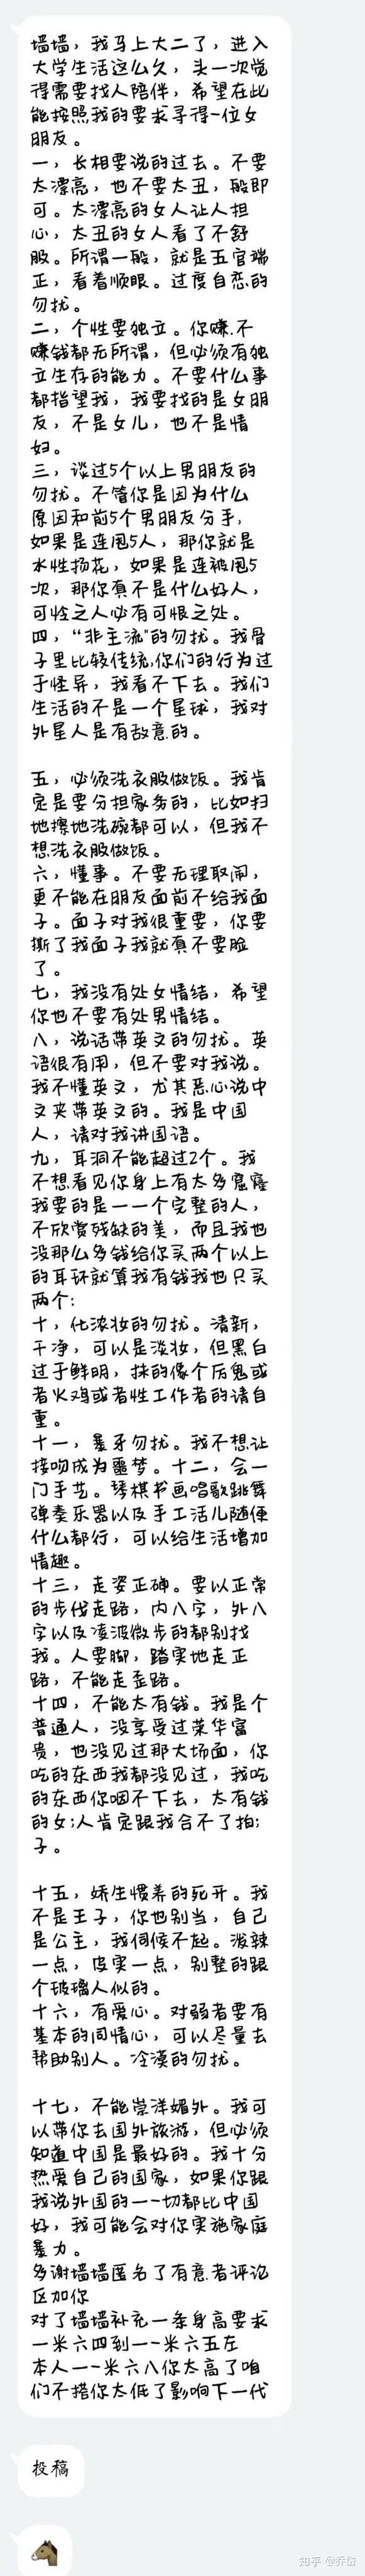 墙墙，我马上大二了，进入
大学生活这么久，头一次觉
得需要找人陪伴，希望在此
能按照我的要求寻得一位女
朋友。
一，长相要说的过去。不要
太漂亮，也不要太丑，般即
可。太漂亮的女人让人担
心，太丑的女人看了不舒
服。所谓一般，就是五官端
正，看着顺眼。过度自恋的
勿扰。
二，个性要独立。你赚.不
赚钱都无所谓，但必须有独
立生存的能力。不要什么事
都指望我，我要找的是女朋
友，不是女儿，也不是情
妇。
三，谈过5个以上男朋友的
勿扰。不管你是因为什么
原因和前5个男朋友分手，
如果是连甩5人，那你就是
水性扬花，如果是连被甩5
次，那你真不是什么好人，
可怜之人必有可恨之处。
四，“非主流"的勿扰。我骨
子里比较传统,你们的行为过
于怪异，我看不下去。我们
生活的不是一个星球，我对
外星人是有敌意的。
五，必须洗衣服做饭。我肯
定是要分担家务的，比如扫
地擦地洗碗都可以，但我不
想洗衣服做饭。
六，懂事。不要无理取闹，
更不能在朋友面前不给我面
子。面子对我很重要，你要
撕了我面子我就真不要脸
了。
七，我没有处女情结，希望
你也不要有处男情结。
八，说话带英文的勿扰。英
语很有用，但不要对我说。
我不懂英文，尤其恶心说中
文夹带英文的。我是中国
人，请对我讲国语。
九，耳洞不能超过2个。我
不想看见你身上有太多窟窿
我要的是一一个完整的人，
不欣赏残缺的美，而且我也
没那么多钱给你买两个以上
的耳环就算我有钱我也只买
两个:
十，化浓妆的勿扰。清新，
干净，可以是淡妆，但黑白
过于鲜明，抹的像个厉鬼或
者火鸡或者性工作者的请自
重。
十一，暴牙勿扰。我不想让
接吻成为噩梦。十二，会一
门手艺。琴棋书画唱歌跳舞
弹奏乐器以及手工活儿随便
什么都行，可以给生活增加
情趣。
十三，走姿正确。要以正常
的步伐走路，内八字，外八
字以及凌波微步的都别找
我。人要脚，踏实地走正
路，不能走歪路。
十四，不能太有钱。我是个
普通人，没享受过荣华富
贵，也没见过那大场面，你
吃的东西我都没见过，我吃
的东西你咽不下去，太有钱
的女;人肯定跟我合不了拍;
子。
十五，娇生惯养的死开。我
不是王子，你也别当，自己
是公主，我伺候不起。泼辣
一点，皮实一点，别整的跟
个玻璃人似的。
十六，有爱心。对弱者要有
基本的同情心，可以尽量去
帮助别人。冷漠的勿扰。
十七，不能崇洋媚外。我可
以带你去国外旅游，但必须
知道中国是最好的。我十分
热爱自己的国家，如果你跟
我说外国的一一切都比中国
好，我可能会对你实施家庭
暴力。
多谢墙墙匿名了有意者评论
区加你
对了墙墙补充一条身高要求
一米六四到一一米六五左
本人一一米六八你太高了咱
们不搭你太低了影响下一代
投稿
知乎 @乔岱